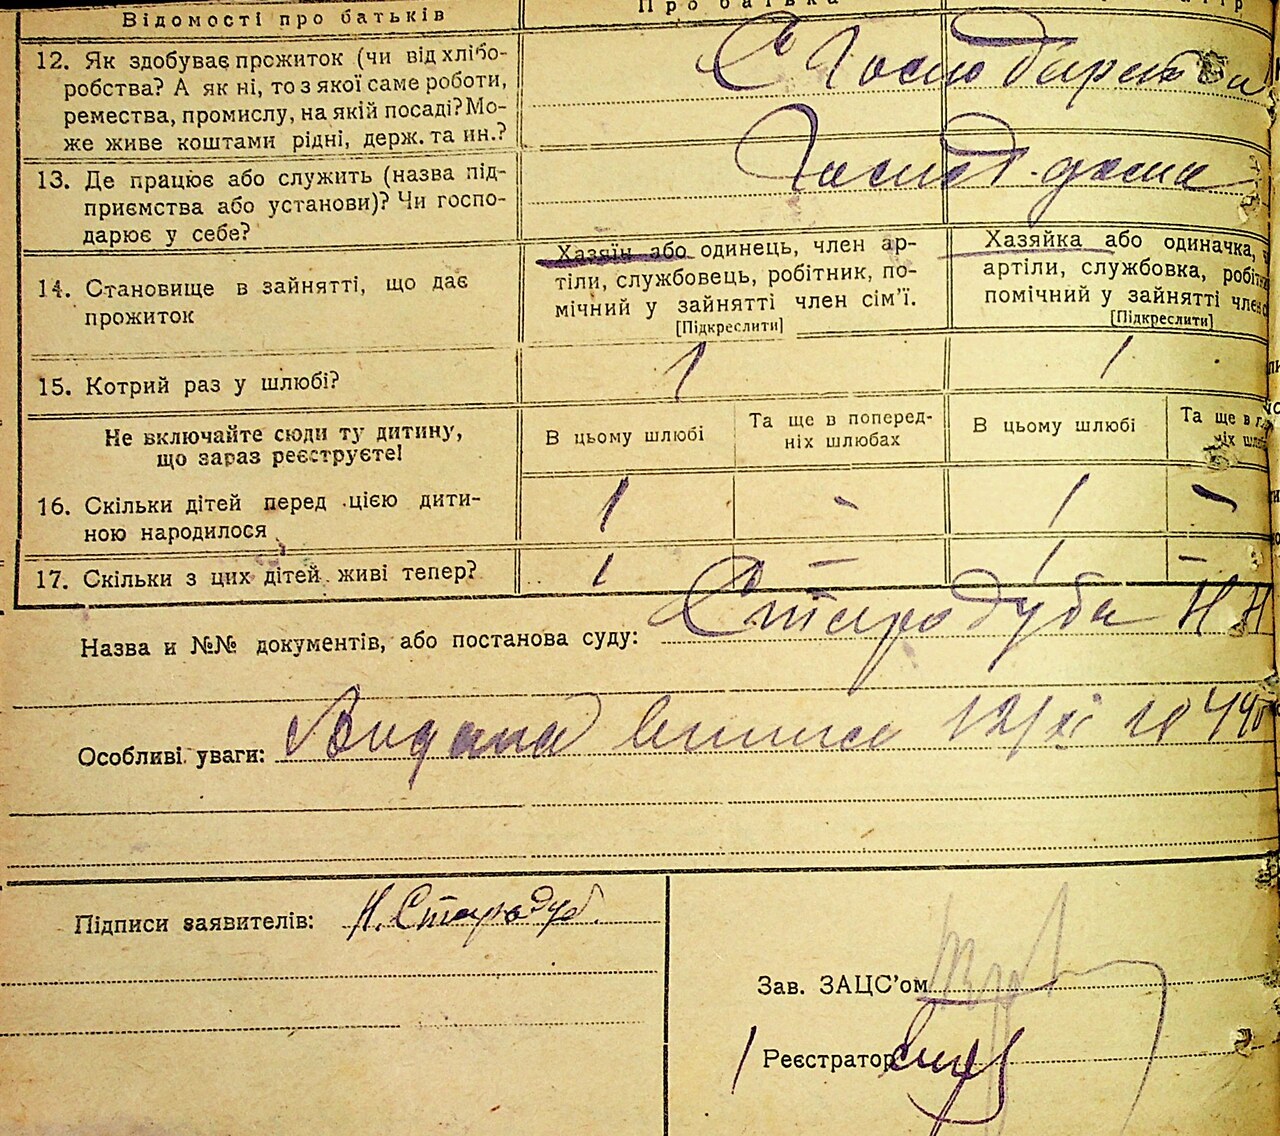 Відомості про батьків
Про батька
12. Як здобуває прожиток (чи від хлібо-
робства? А як ні, то з якої саме роботи,
ремества, промислу, на якій посаді? Мо-
же живе коштами рідні, держ. та ин.?
13. Де працює або служить (назва під-
приємства або установи)? Чи госпо-
дарює у себе?
Господ. дома
14. Становище в зайнятті, що дає
прожиток
Хазяїн або одинець, член ар-
тіли, службовець, робітник, по-
мічний у зайнятті член сім’ї.
[Підкреслити]
Хазяйка або одиначка,
артіли, службовка,
помічний у зайнятті
[Підкреслити]
15. Котрий раз у шлюбі?
1
1
Не включайте сюди ту дитину,
що зараз реєструєте!
В цьому шлюбі
Та ще в поперед-
ніх шлюбах
В цьому шлюбі
Та ще в
16. Скільки дітей перед цією дити-
ною народилося
1
-
1
-
17. Скільки з цих дітей живі тепер?
1
-
1
-
Назва и №№ документів, або постанова суду: Стародуба Н Н
Особливі уваги: Видана 12/XI
Підписи заявителів: Н. Стародуб.
Зав. ЗАЦС’ом
Реєстратор